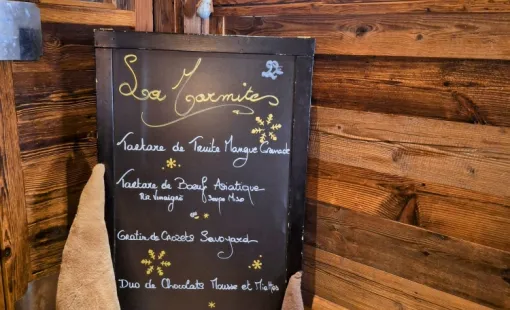 La Marmite
Tartare de Truite Mangue Grenade
Tartare de Bœuf Asiatique
Riz Vinaigré Soupe Miso
Gratin de Crozets Savoyard
Duo de Chocolats Mousse et